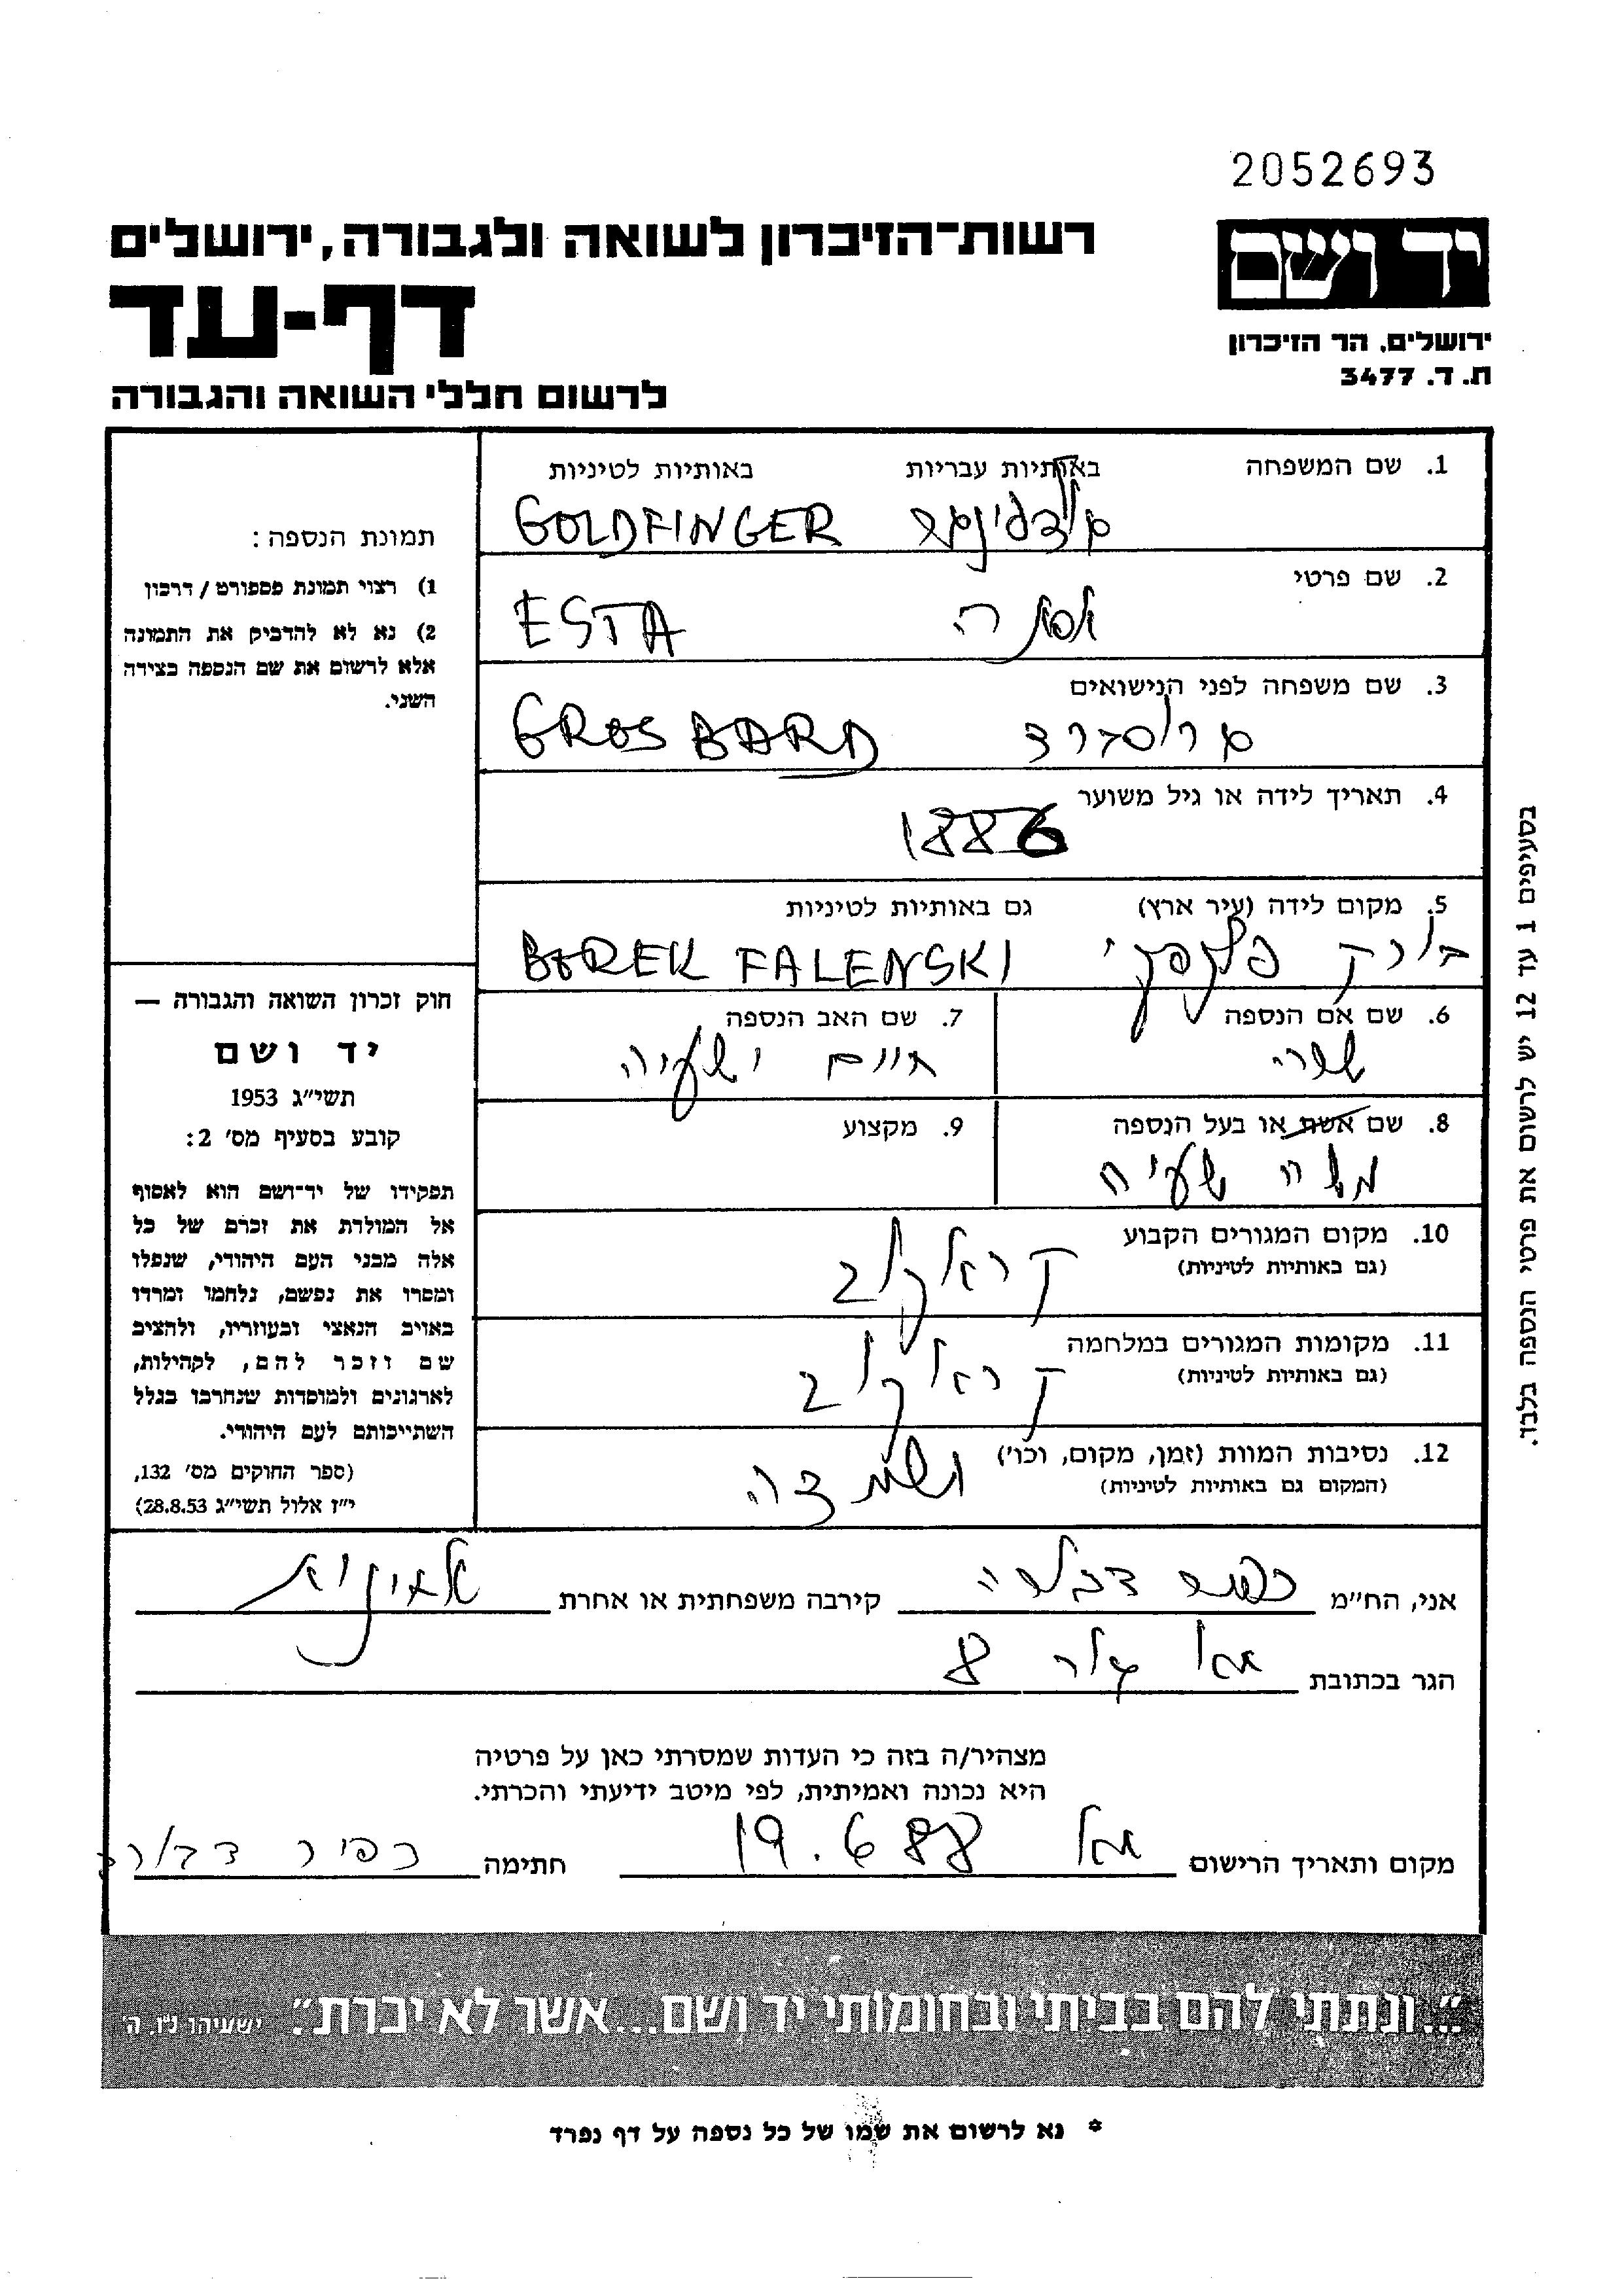 2052693
יד ושם
רשות־הזיכרון לשואה ולגבורה, ירושלים
דף-עד
ירושלים, הר הזיכרון
ת. ד. 3477
לרשום חללי השואה והגבורה
1. שם המשפחה באותיות עבריות באותיות לטיניות
גולדפינגר GOLDFINGER
2. שם פרטי
אסתה ESTA
3. שם משפחה לפני הנישואים
גרוסברד GROSBARD
4. תאריך לידה או גיל משוער
1886
5. מקום לידה (עיר ארץ) גם באותיות לטיניות
בורק פלנסקי BOREK FALENSKI
6. שם אם הנספה
שרי
7. שם האב הנספה
חיים ישעיה
8. שם אשת או בעל הנספה
משה
9. מקצוע
10. מקום המגורים הקבוע
(גם באותיות לטיניות)
קראקוב
11. מקומות המגורים במלחמה
(גם באותיות לטיניות)
קראקוב
12. נסיבות המוות (זמן, מקום, וכו')
(המקום גם באותיות לטיניות)
תמונת הנספה :
1) רצוי תמונת פספורט / דרכון
2) נא לא להדביק את התמונה
אלא לרשום את שם הנספה בצידה
השני.
חוק זכרון השואה והגבורה —
יד ושם
תשי"ג 1953
קובע בסעיף מס' 2:
תפקידו של יד־ושם הוא לאסוף
אל המולדת את זכרם של כל
אלה מבני העם היהודי, שנפלו
ומסרו את נפשם, נלחמו ומרדו
באויב הנאצי ובעוזריו, ולהציב
שם וזכר להם, לקהילות,
לארגונים ולמוסדות שנחרבו בגלל
השתייכותם לעם היהודי.
(ספר החוקים מס' 132,
י"ז אלול תשי"ג 28.8.53)
בסעיפים 1 עד 12 יש לרשום את פרטי הנספה בלבד.
אני, הח"מ כפיר דבורה קירבה משפחתית או אחרת
הגר בכתובת 8
מצהיר/ה בזה כי העדות שמסרתי כאן על פרטיה
היא נכונה ואמיתית, לפי מיטב ידיעתי והכרתי.
מקום ותאריך הרישום 19.6.88 חתימה כפיר דבורה
"...ונתתי להם בביתי ובחומותי יד ושם...אשר לא יכרת". ישעיהו נ"ו, ה'
* נא לרשום את שמו של כל נספה על דף נפרד